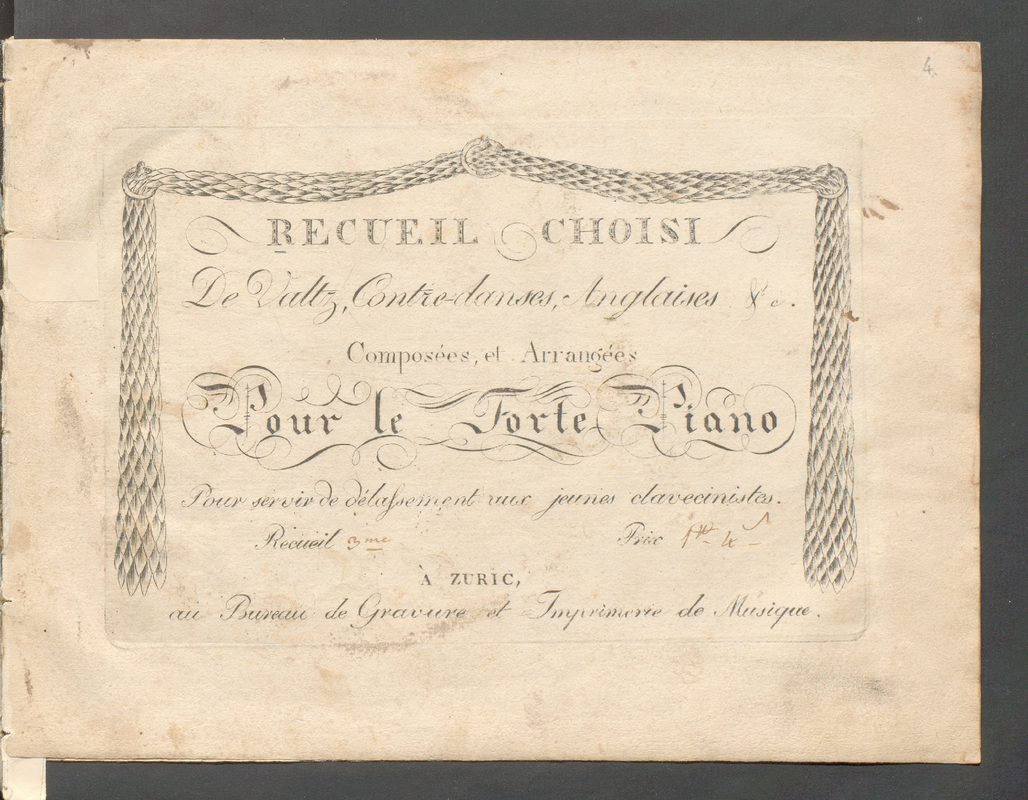 4.
RECUEIL CHOISI
De Valtz, Contre-danses, Anglaises &c.
Composées, et Arrangées
Pour le Forte Piano
Pour servir de délassement aux jeunes clavecinistes.
Recueil 3me Prix
À ZURIC,
au Bureau de Gravure et Imprimerie de Musique.